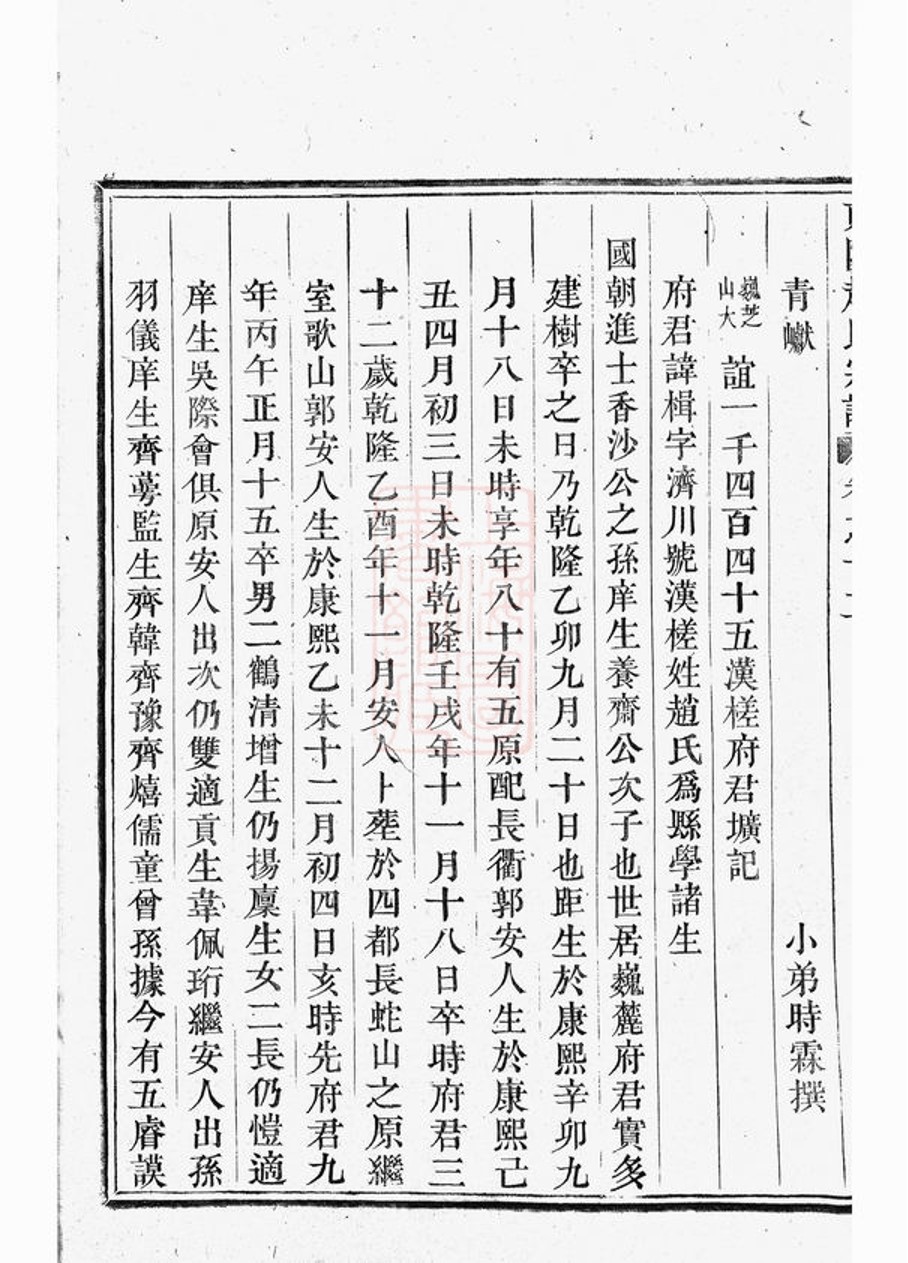 青巘 小弟時霖撰
巍芝山大 誼一千四百四十五漢槎府君壙記
府君諱楫字濟川號漢槎姓趙氏爲縣學諸生
國朝進士香沙公之孫庠生養齋公次子也世居巍麓府君實多
建樹卒之日乃乾隆乙卯九月二十日也距生於康熙辛卯九
月十八日未時享年八十有五原配長衢郭安人生於康熙己
丑四月初三日未時乾隆壬戌年十一月十八日卒時府君三
十二歲乾隆乙酉年十一月安人卜葬於四都長蛇山之原繼
室歌山郭安人生於康熙乙未十二月初四日亥時先府君九
年丙午正月十五卒男二鶴清增生仍揚廪生女二長仍愷適
庠生吳際會俱原安人出次仍雙適貢生韋佩珩繼安人出孫
羽儀庠生齊蕚監生齊韓齊豫齊熺儒童曾孫據今有五睿謨